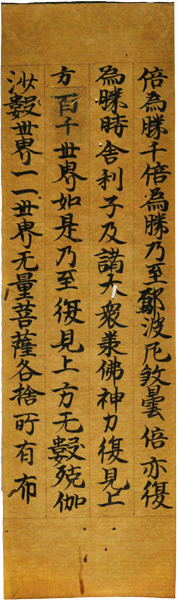 倍為勝千倍為勝乃至鄔波尼煞曇倍亦復
為勝時舍利子及諸大眾乗佛神力復見上
方百千世界如是乃至復見上方无數殑伽
沙數世界一一世界无量菩薩各捨所有布